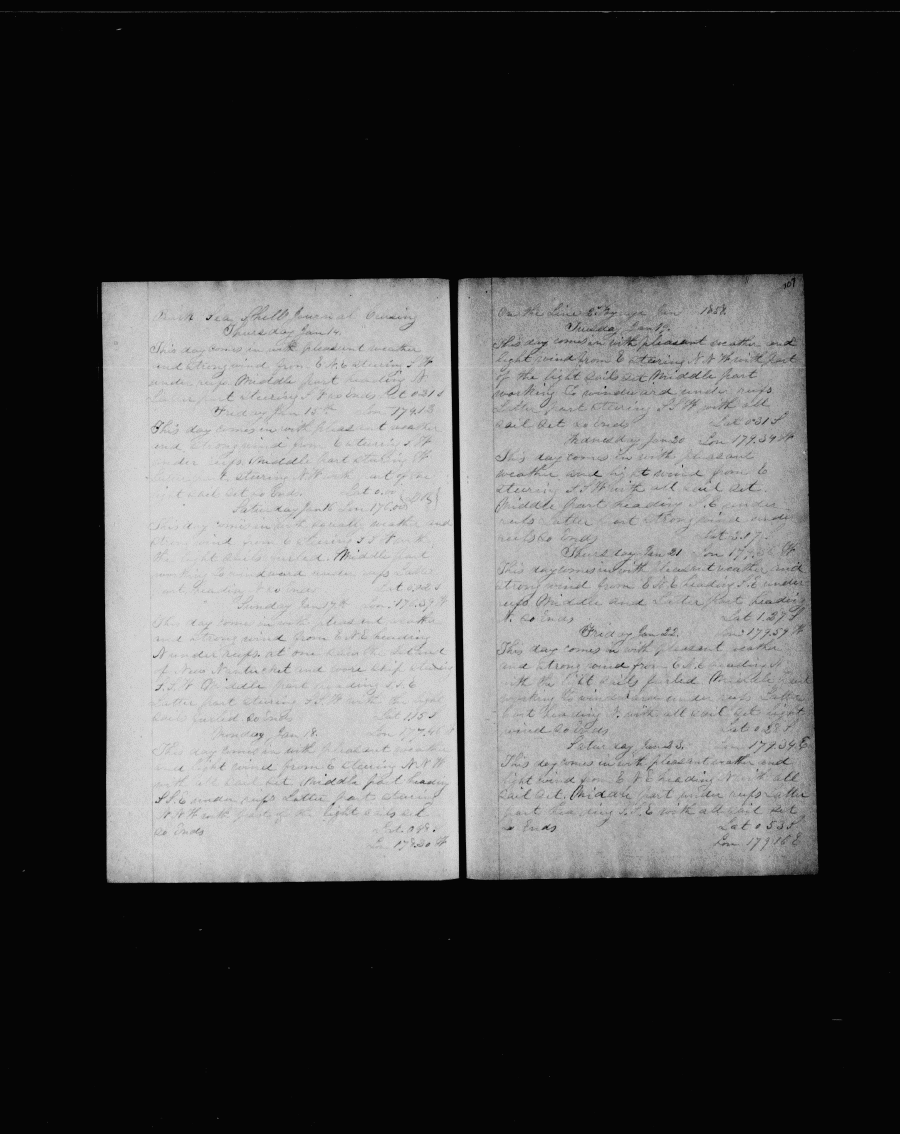 Bark Sea Shell Journal Cruising
Thursday Jan 14.
This day comes in with pleasant weather
and strong wind from E N E steering S W
under reefs Middle part heading N
Latter part steering S W so Ends Lat 0.31 S
Friday Jan 15th Lon 179.13
This day comes in with pleasant weather
and strong wind from E steering S W
under reefs Middle part steering W
Latter part steering N W with part of the
light sail set so Ends Lat 0.0
Saturday Jan 16 Lon 178.
This day comes in with weather and
strong wind from E steering S S W with
the light sails furled. Middle part
working to windward under reefs Latter
part heading N so Ends Lat 0.
Sunday Jan 17th Lon 178.39 W
This day comes in with pleasant weather
and strong wind from E N E heading
N under reefs at one saw the Island
of New Nantucket and wore ship steering
S S W Middle part heading S S E
Latter part steering S S W with the light
sails furled so Ends Lat 1.15 S
Monday Jan 18. Lon 177.46
This day comes in with pleasant weather
and light wind from E steering N N W
with all sail set Middle part heading
S S E under reefs Latter part steering
N N W with part of the light sails set
so Ends Lat 0.
Lon 178.30 W
107
On the Line Jan 1858
Tuesday Jan 19.
This day comes in with pleasant weather and
light wind from E steering N N W with part
of the light sails set Middle part
working to windward under reefs
Latter part steering S S W with all
sail set so Ends Lat 0.31 S
Wednesday Jan 20 Lon 179.34 W
This day comes in with pleasant
weather and light wind from E
steering S S W with all sail set
Middle part heading S E under
reefs Latter part strong wind under
reefs so Ends Lat
Thursday Jan 21 Lon 179. W
This day comes in with pleasant weather and
strong wind from E N E heading S E under
reefs Middle and Latter part heading
N. so Ends Lat 1.27 S
Friday Jan 22. Lon 179.59 W
This day comes in with pleasant weather
and strong wind from E N E heading N
with the light sails furled Middle part
working to windward under reefs Latter
part heading N. with all sail set light
wind so Ends Lat 0.28 S
Saturday Jan 23. Lon 179.34 E
This day comes in with pleasant weather and
light wind from E N E heading N with all
sail set. Middle part under reefs Latter
part heading S S E with all sail set
so Ends Lat 0.53 S
Lon 179.16 E